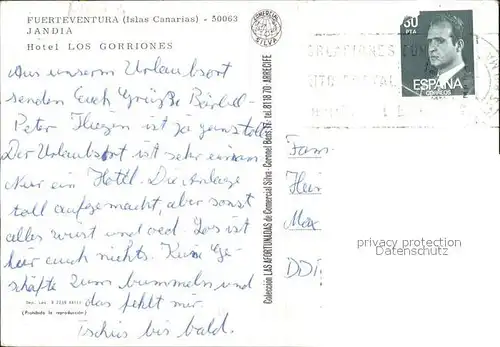 FUERTEVENTURA (Islas Canarias) - 50063
JANDIA
Hotel LOS GORRIONES
Aus unserm Urlaubsort
senden Euch Grüße Bärbel-
Peter Fliegen ist ja ganz toll
Der Urlaubsort ist sehr einsam
Nur ein Hotel. Die Anlage
toll aufgemacht, aber sonst
alles wüst und oed. Los ist
hier auch nichts. Keine Ge-
schäfte zum bummeln und
das fehlt mir.
Tschüs bis bald.
(Prohibida la reproducción)
COMERCIAL
SILVA
Colección LAS AFORTUNADAS de Comercial Silva - Coronel Bens, 17 - tel. 81 18 70 - ARRECIFE
30
PTA
ESPAÑA
CORREOS
Fam
Hein
Max
DDR
privacy protection
Datenschutz